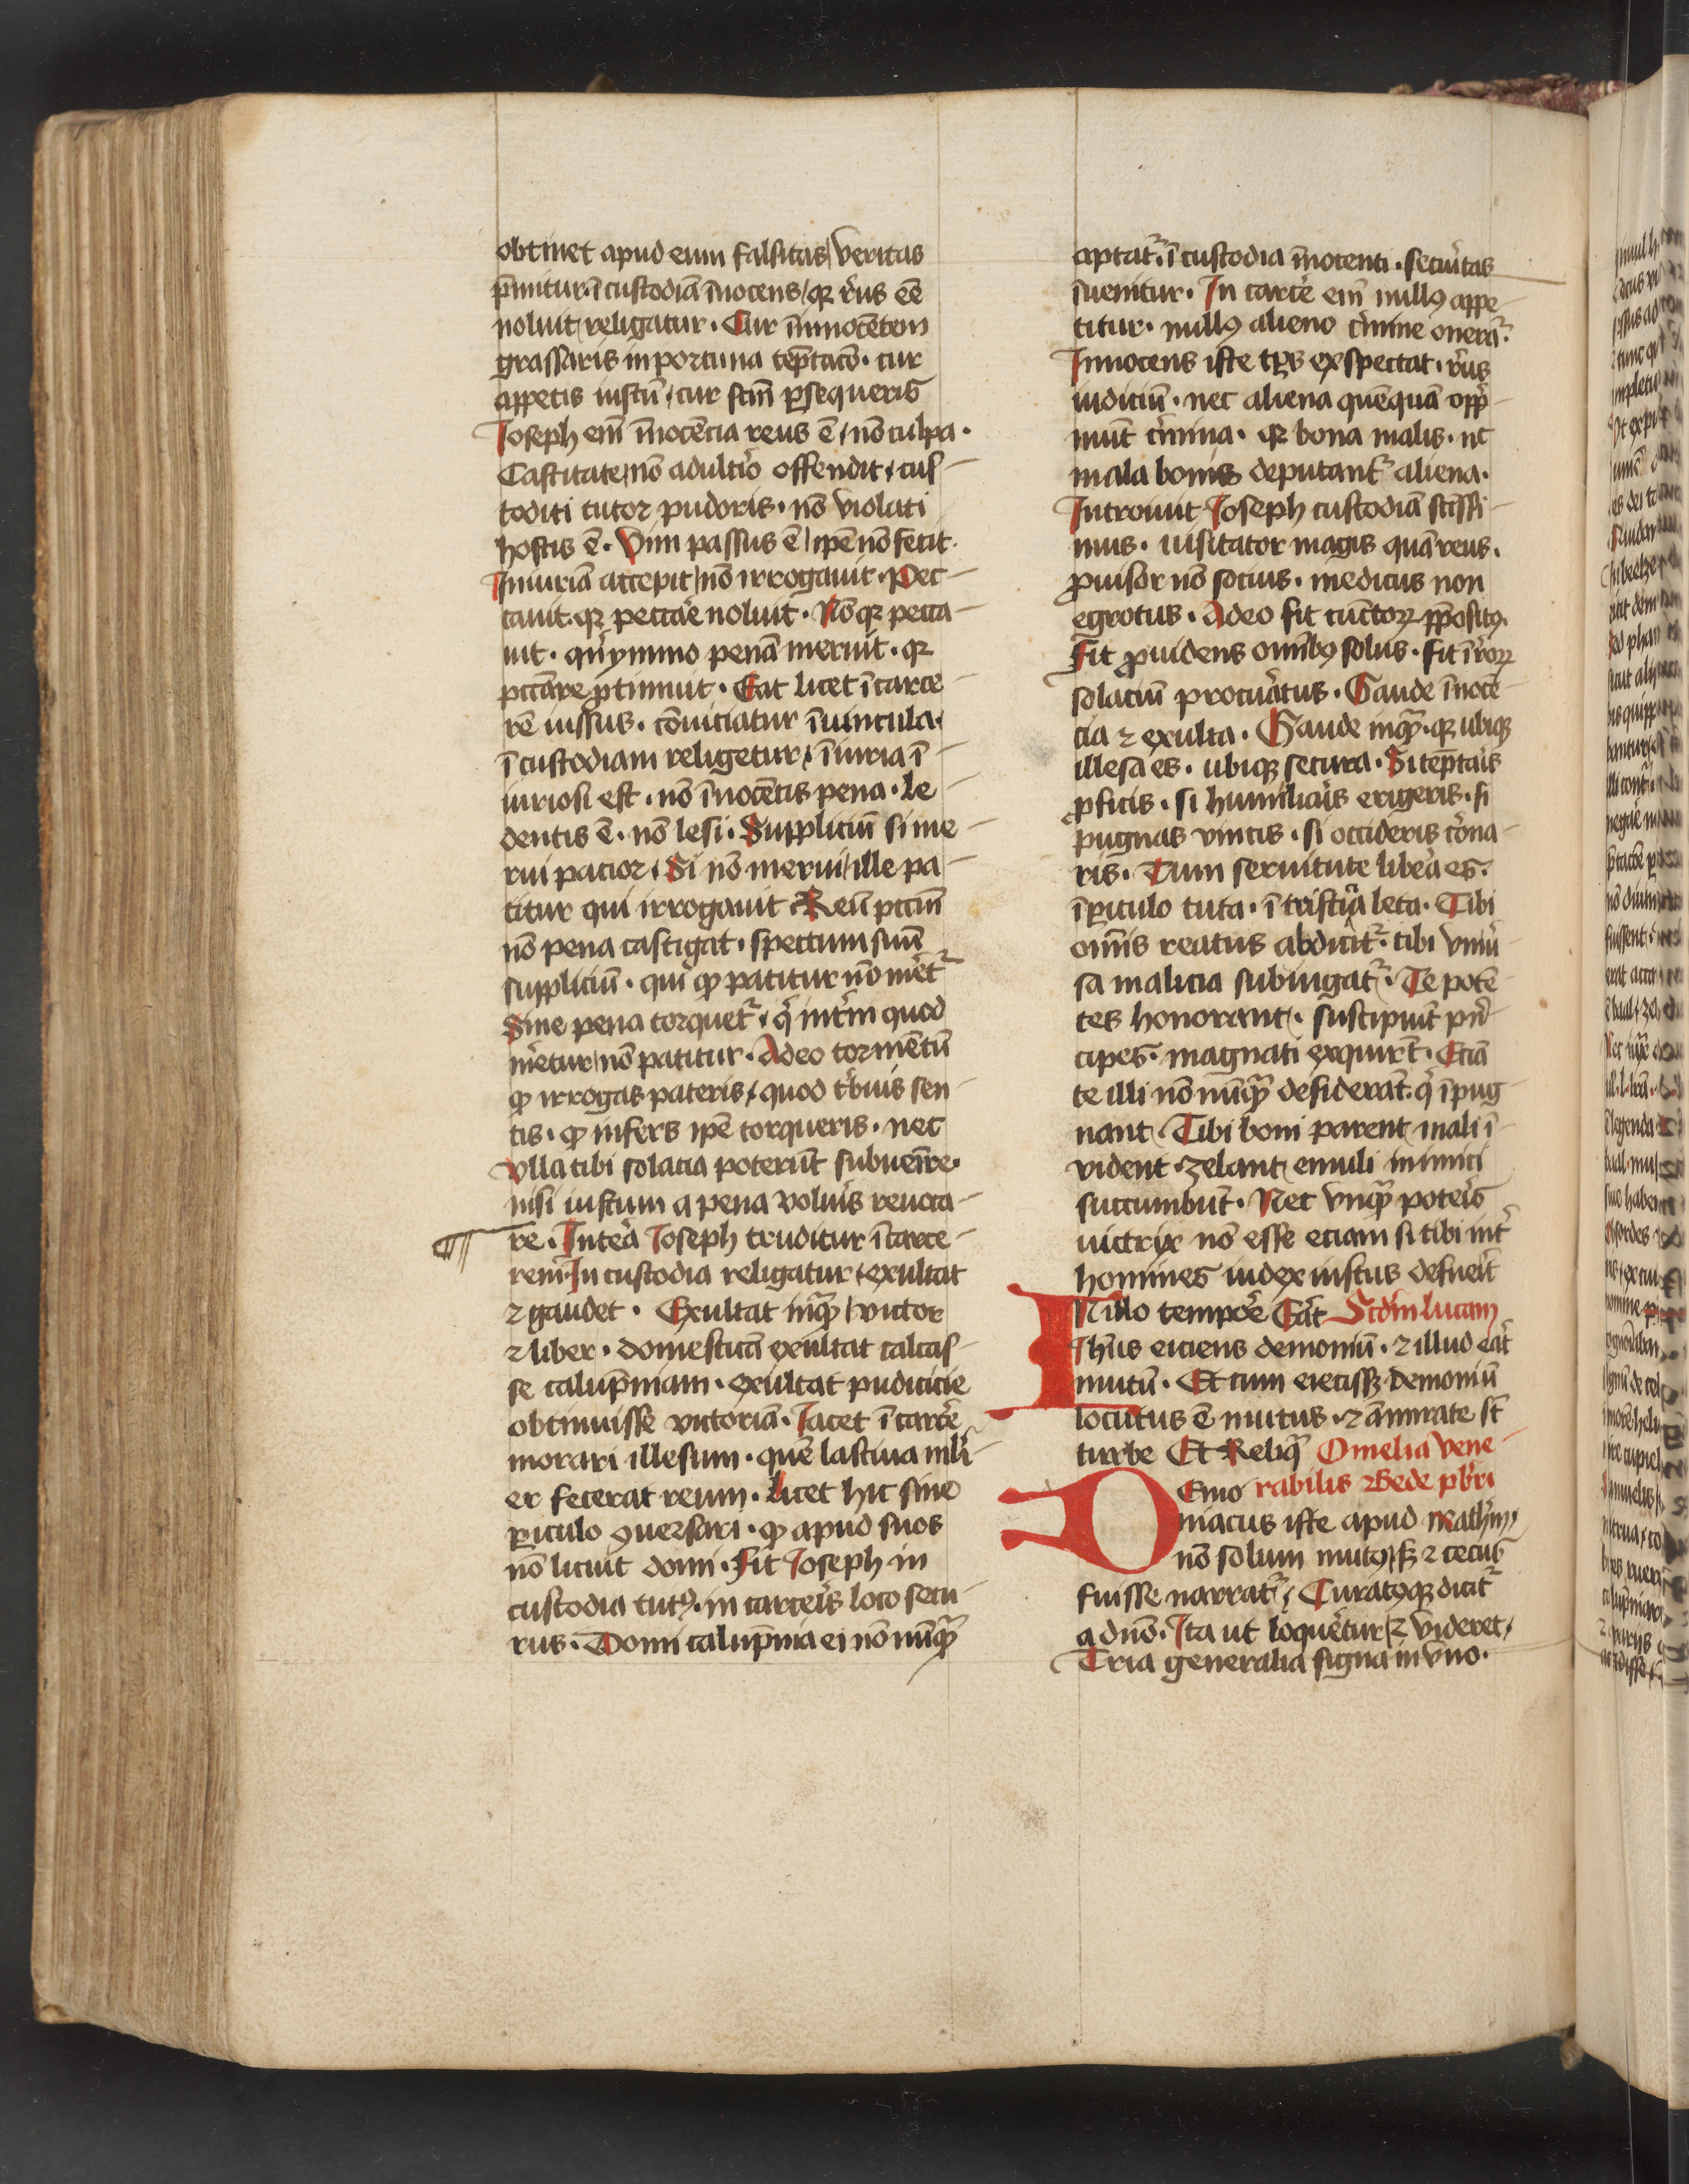 obtinet apud eum falsitas / veritas
p̄mitur. ī custodiā īnocens / qꝛ reꝰ eē
noluit / religatur · Cur īnnocētem
grassaris inportuna tēptatō · cur
appetis iustū / cur scm̄ ꝑsequeris
Ioseph em̄ īnocēcia reus ē / nō culpa ·
Castitate / nō adultͥo offendit / cus-
toditi tutor pudoris · nō violati
hostis ē · Vim passus ē / ip̄e nō fecit ·
Iniuriā accepit / nō irrogauit · Pec-
cauit · qꝛ peccāe noluit · Nō qꝛ pecca-
uit · qn̄ymmo penā meruit · qꝛ
pccāre ꝑtimuit · Eat licet ī carce-
rē iussus · cōuiciatur ī uincula ·
ī custodiam religetur / īiuria ī-
iuriosi est · nō īnocētis pena · le-
dentis ē · nō lesi · Suppliciū si me-
rui pacior / Si nō merui / ille pa-
titur qui irrogauit Reū pccm̄
nō pena castigat · spectum suū
suppliciū · qui qꝫ patitur nō met͛
Sine pena torquet͛ / qͥ int͛im quod
met͛etur / nō patitur · Adeo tormētū
qꝫ irrogas pateris / quod t͛buis sen-
tis · qꝫ infers ip̄e torqueris · nec
vlla tibi solacia poterūt subuenire ·
nisi iustum a pena volu͛is reuoca-
re · Inte͛a Ioseph truditur ī carce-
rem · In custodia religatur / exultat
⁊ gaudet · Exultat inqͣꝫ / victor
⁊ liber · domesticā exultat calcas-
se calūpniam · exultat pudicicie
obtinuisse victoriā · Iacet ī carce͛
morari illesum · quē lasciua mli-
er fecerat reum · licet hic sine
ꝑiculo ꝯuersari · qꝫ apud suos
nō licuit domi · Fit Ioseph in
custodia tutꝰ · in carce͛is loco secu-
rus · Domi calūpnia ei nō nūqͣꝫ
aptat͛ · ī custodia īnocenti · secu͛itas
īuenitur · In carce͛ em̄ nullꝰ appe-
titur · nullꝰ alieno c͛mine one͛at͛ ·
Innocens iste exspectat · reꝰ
iudiciū · nec aliena quēquā opp͛-
mūt c͛mina · qꝛ bona malis · nc̄
mala bonis deputant͛ aliena ·
Introiuit Ioseph custodiā sctissi-
mus · uisitator magis quā reus ·
ꝓuisor nō socius · medicus non
egrotus · Adeo fit cūctoꝝ p̄positꝰ ·
Fit ꝓuidens omībꝰ solus · fit ī reoꝝ
solaciū procu͛atus · Gaude īnocē-
cia ⁊ exulta · Gaude inqͣꝫ · qꝛ ubiqꝫ
illesa es · ubiqꝫ secura · Si tēpta͛is
ꝓficis · si humilia͛is erigeris · si
pugnas vincis · si occideris co͛na-
ris · Tum seruitute libe͛a es ·
ī ꝑiculo tuta · ī tristicͥa leta · Tibi
omīs reatus abdicit͛ · tibi vniu͛-
sa malicia subiugat͛ · Te potē-
tes honorant / suscipiūt pͥn-
cipes · magnati exquirūt · Eciā
te illi nō nūqͣꝫ desiderāt · qͥ īpug-
nant · Tibi boni parent / mali ī-
vident · zelant / emuli inimici
succumbūt · Nec vnqͣꝫ pote͛is
uictrix nō esse eciam si tibi int͛
homines iudex iustus defue͛it
IN illo tempoͤre E͛at Scd̄m lucam
Ihūs eiciens demoniū · ⁊ illud e͛at
mutū · Et cum eiecissꝫ demoniū
locutus ē mutus · ⁊ āmirate st̄
turbe Et Reliqͣ Omelia vene-
rabilis Bede pb͛ri
DEmo
niacus iste apud Math̄m /
nō solum mutꝰ / sꝫ ⁊ cecus
fuisse narrat͛ / Curatꝰqꝫ dicit͛
a dn̄o · Ita ut loqueretur / ⁊ videret /
Tria generalia signa in vno ·